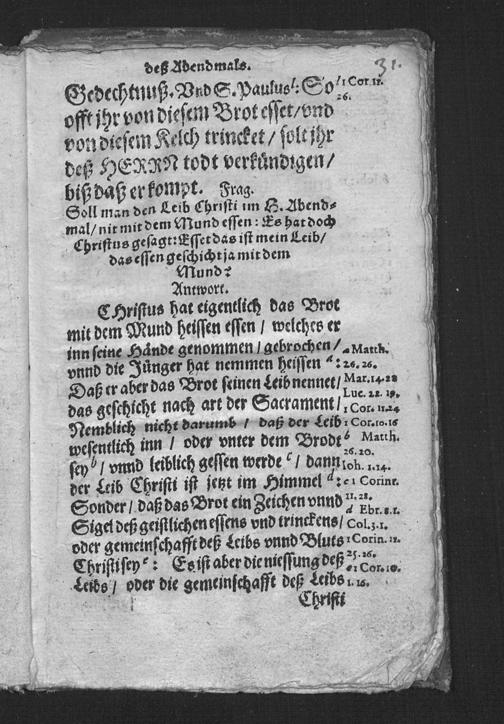 deß Abendmals.
31.
Gedechtnuß. Vnd S. Paulus: So
offt jhr von diesem Brot esset/vnd
von diesem Kelch trincket / solt jhr
deß HERRN todt verkündigen/
biß daß er kompt. Frag.
Soll man den Leib Christi im H. Abend-
mal/ nit mit dem Mund essen: Es hat doch
Christus gesagt: Esset das ist mein Leib/
das essen geschicht ja mit dem
Mund?
Antwort.
CHristus hat eigentlich das Brot
mit dem Mund heissen essen / welches er
inn seine Hände genommen/gebrochen/
vnnd die Jünger hat nemmen heissen a:
Daß er aber das Brot seinen Leib nennet/
das geschicht nach art der Sacrament/
Nemblich nicht darumb / daß der Leib
wesentlich inn / oder vnter dem Brodt
sey b/ vnnd leiblich gessen werde c/ dann
der Leib Christi ist jetzt im Himmel d:
Sonder/ daß das Brot ein Zeichen vnnd
Sigel deß geistlichen essens vnd trinckens/
oder gemeinschafft deß Leibs vnnd Bluts
Christi sey e: Es ist aber die niessung deß
Leibs / oder die gemeinschafft deß Leibs
Christi
1 Cor. 11.
26.
a Matth.
26. 26.
Mar. 14. 22
Luc. 22. 19.
1 Cor. 11.24
1 Cor. 10.16
b Matth.
26. 20.
Ioh. 1.14.
c 1 Corint.
11. 28.
d Ebr. 8.1.
Col. 3.1.
1 Corin. 11.
25. 26.
e 1 Cor. 10.
1. 16.